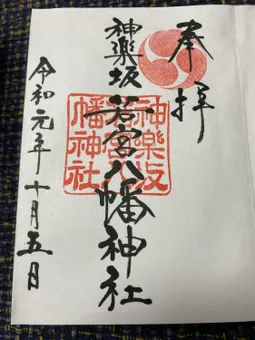 奉拝
神楽坂若宮八幡神社
神樂坂
若宮八
幡神社
令和元年十月五日